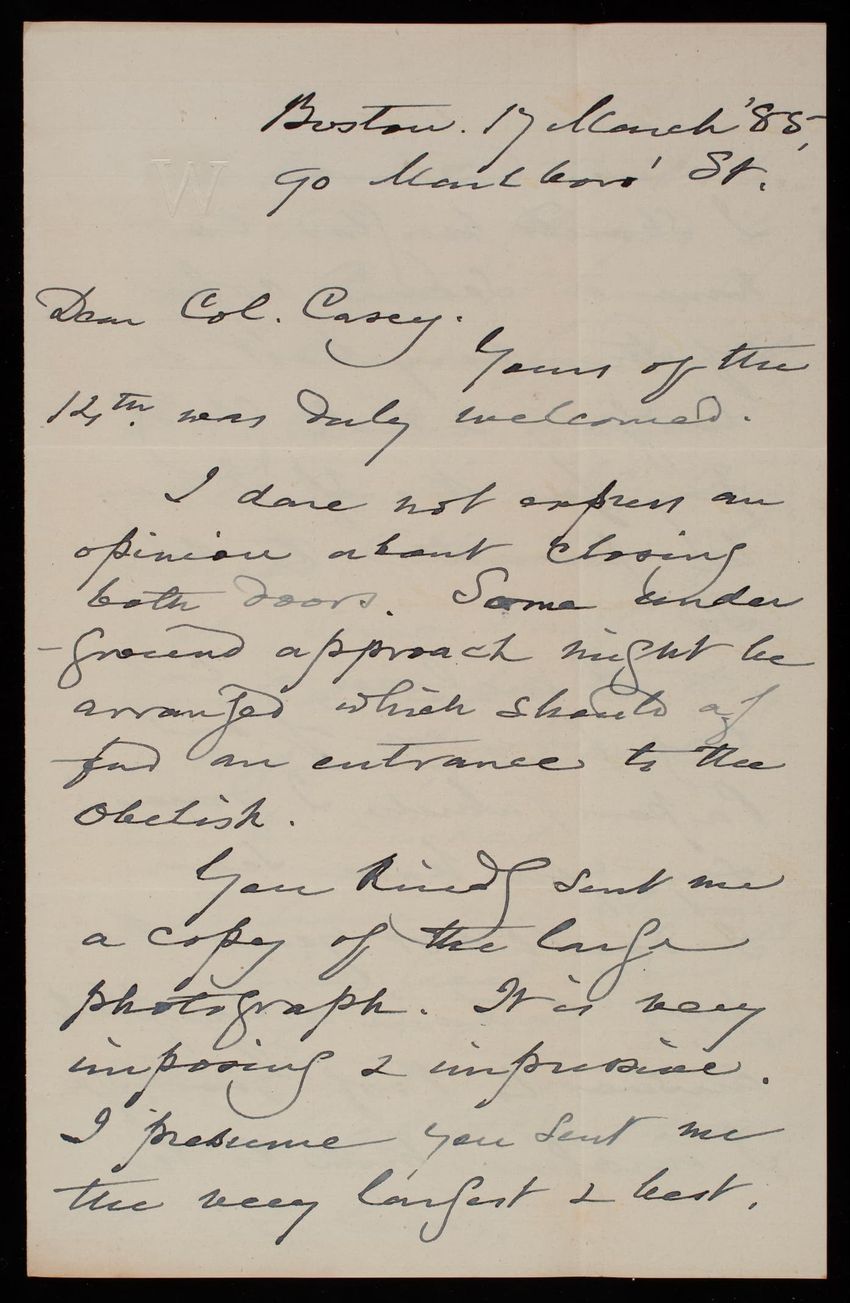 W
Boston. 17 March '85,
90 Marlboro' St.
Dear Col. Casey.
Yours of the
12th. was duly welcomed.
I dare not express an
opinion about closing
both doors. Some under
-ground approach might be
arranged which should af
ford an entrance to the
Obelisk.
You kindly sent me
a copy of the large
photograph. It is very
imposing & impressive.
I presume you sent me
the very largest & best.